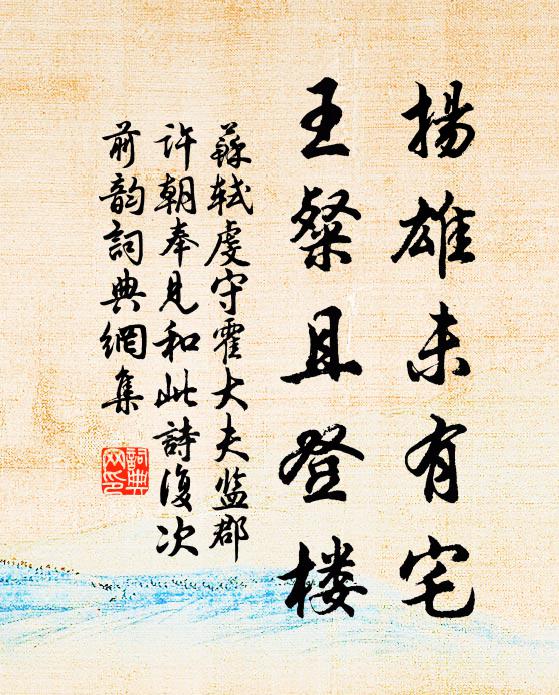 揚雄未有宅
王粲且登楼
蘇軾虔守霍大夫监郡
許朝奉見和此詩復次
前韵詞典網集
詞典
网印